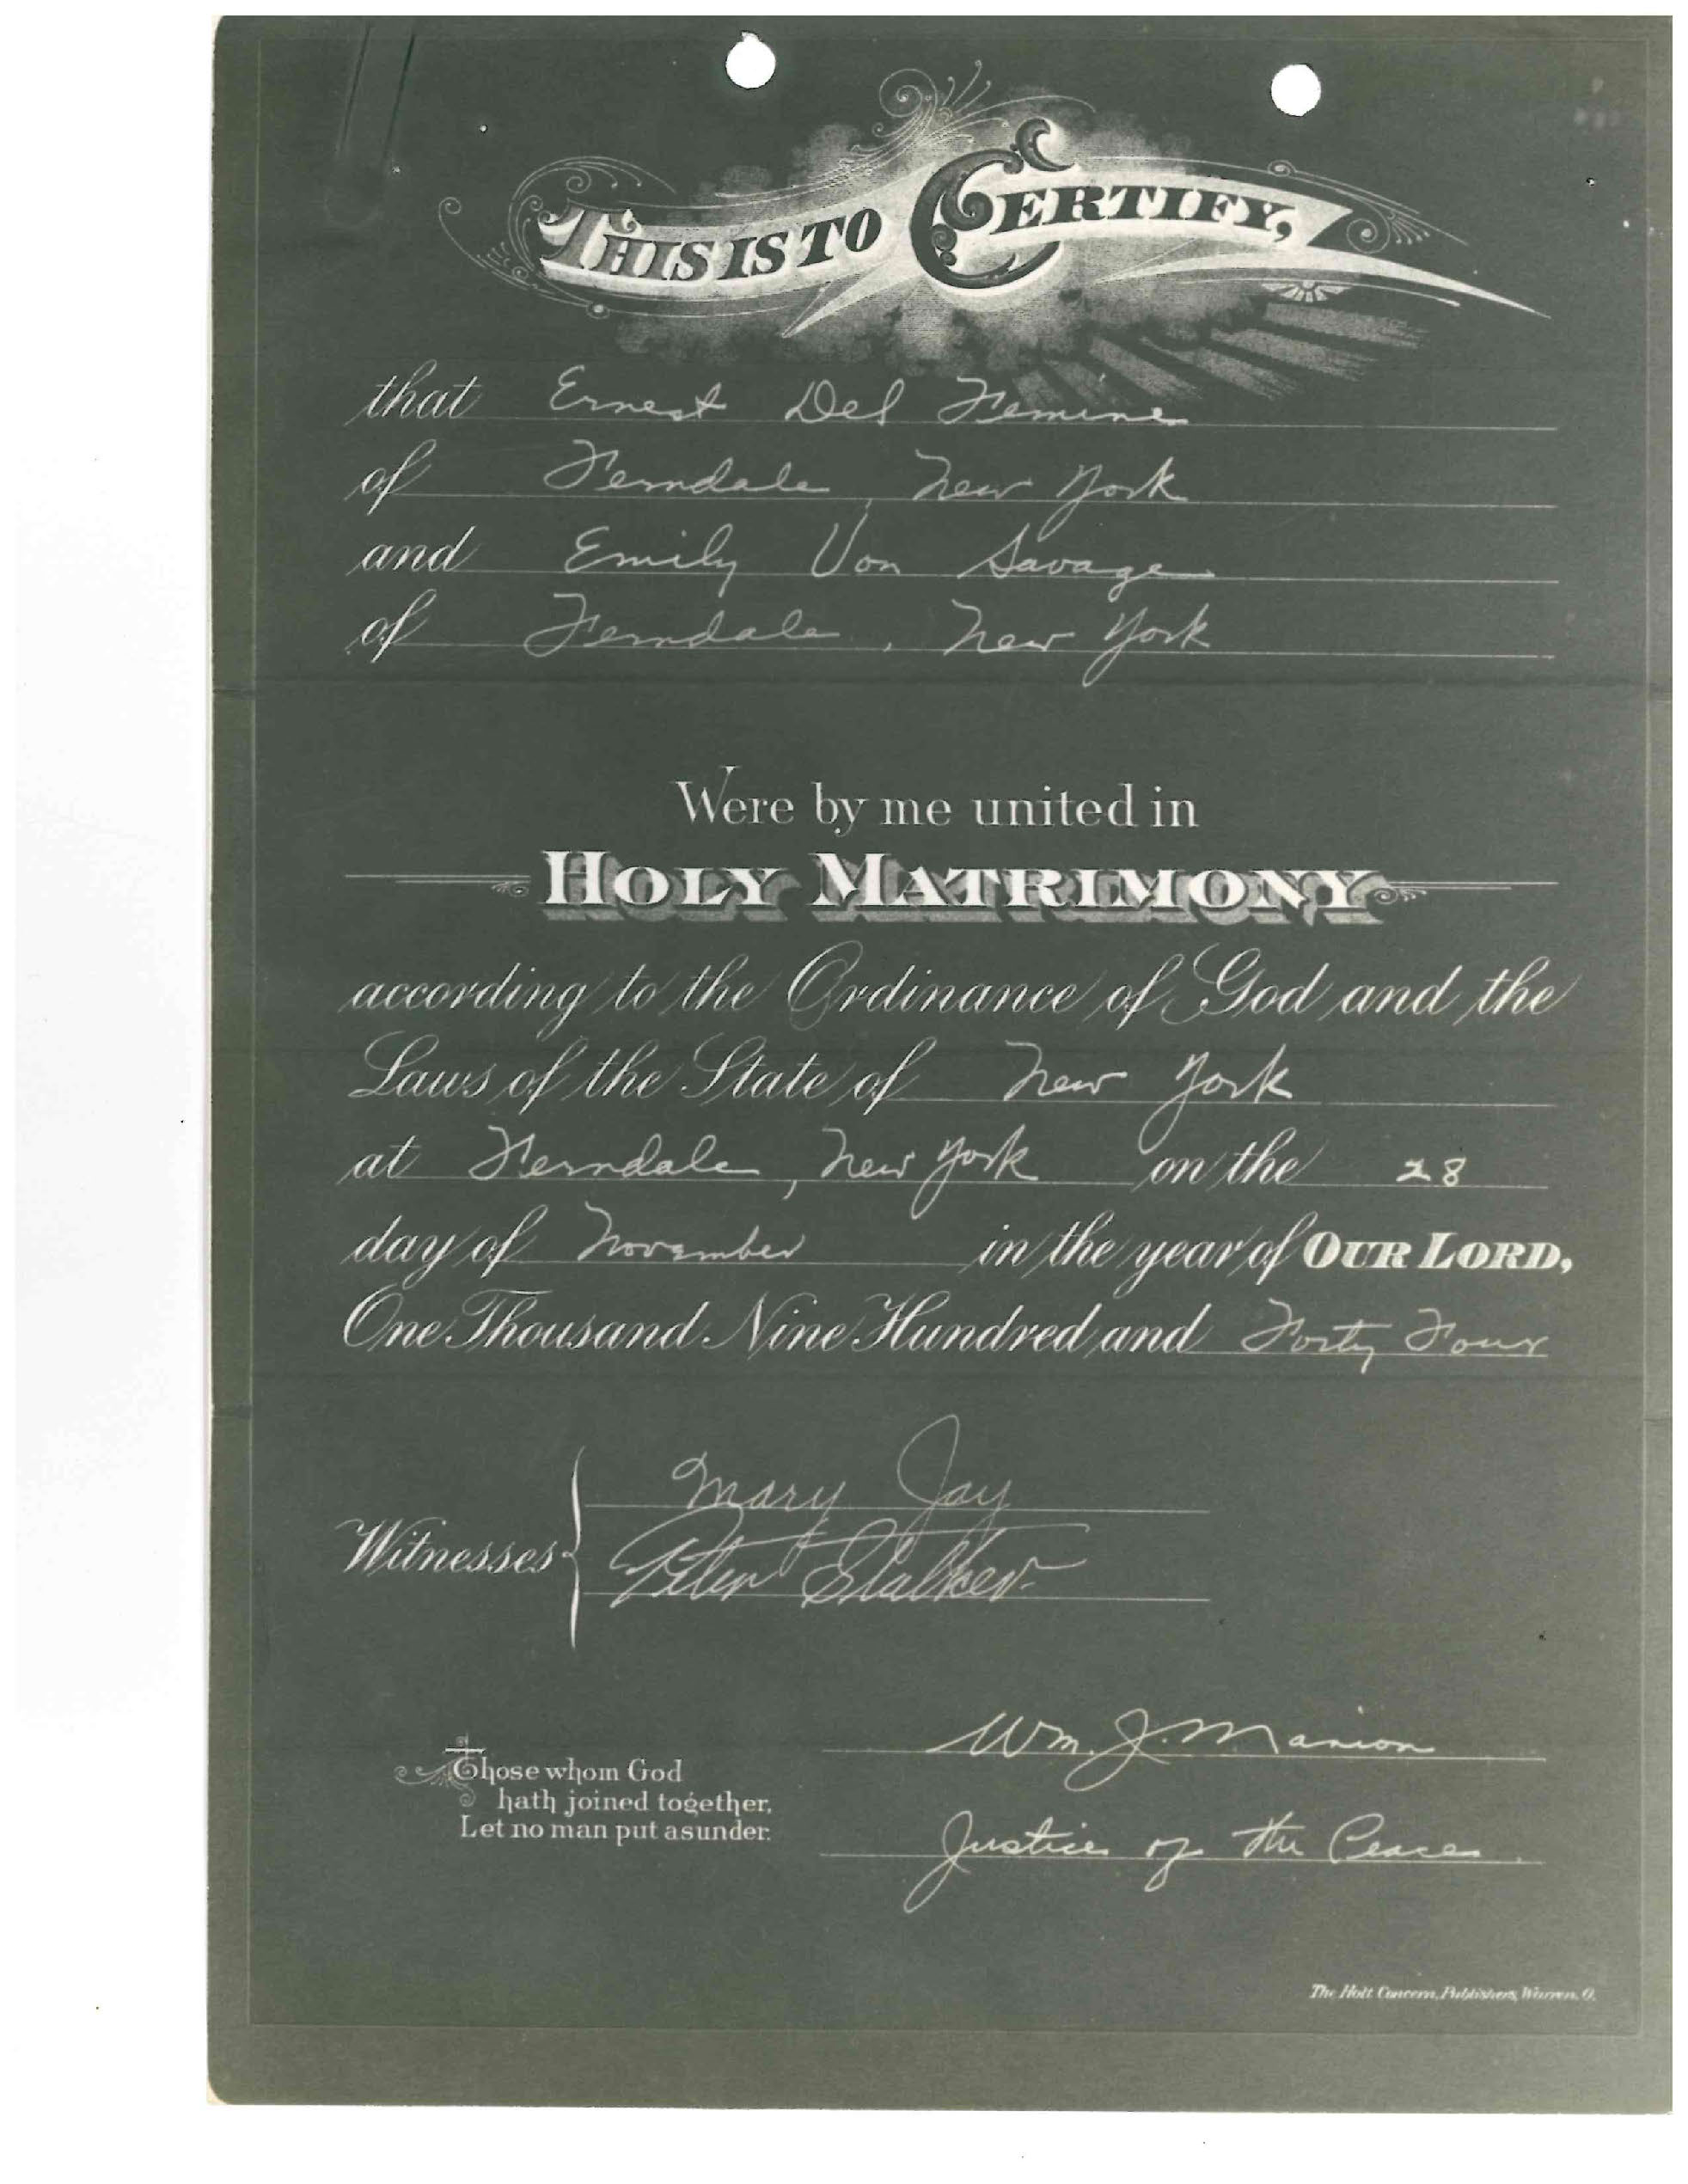 THIS IS TO CERTIFY,
that Ernest Del Femine
of Ferndale, New York
and Emily Von Savage
of Ferndale, New York
Were by me united in
HOLY MATRIMONY
according to the Ordinance of God and the
Laws of the State of New York
at Ferndale, New York on the 28
day of November in the year of OUR LORD,
One Thousand Nine Hundred and Forty Four
Mary Jay
Witnesses
Peter Stalker
Wm. J. Manion
Those whom God
hath joined together,
Let no man put asunder.
Justice of the Peace.
The Holt Concern, Publishers, Warren, O.